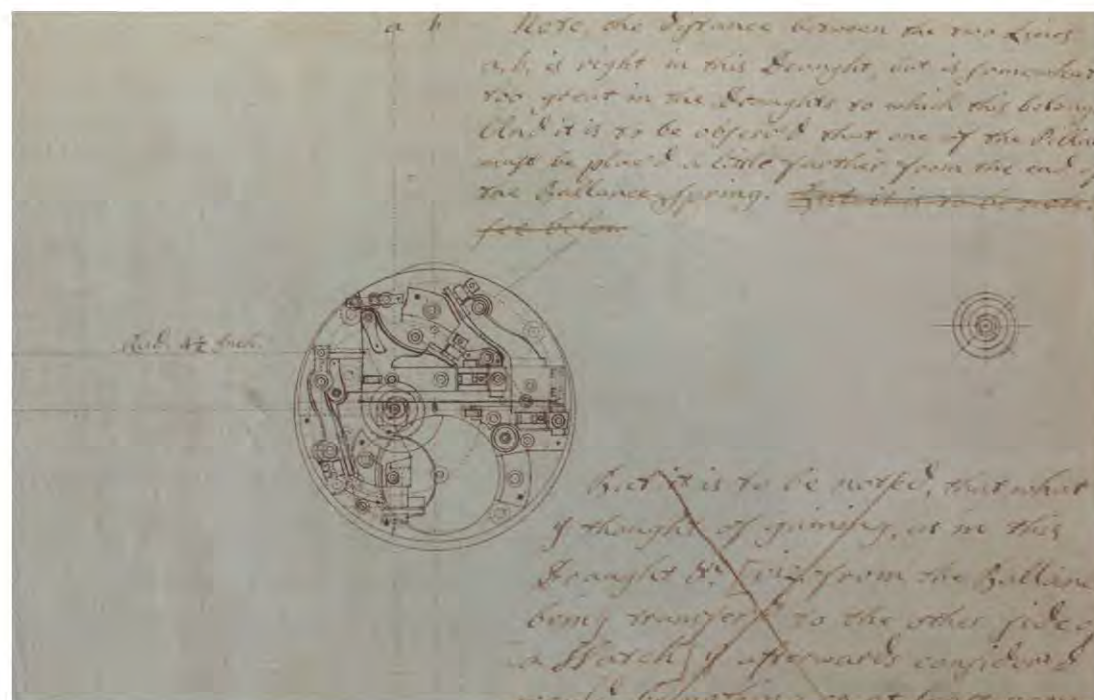 a b
Note, the distance between the two Lines
a, b, is right in this Draught, but is somewhat
too great in the Draughts to which this belong
And it is to be observ'd that one of the Pillar
must be plac'd a little farther from the end of
the Ballance Spring. But it is to be note
see below
Rad. 4½ Inch.
But it is to be noted, that what
I thought of gaining, as in this
Draught &c. viz. from the Ballanc
being transfer'd to the other side of
a Watch, I afterwards consider'd